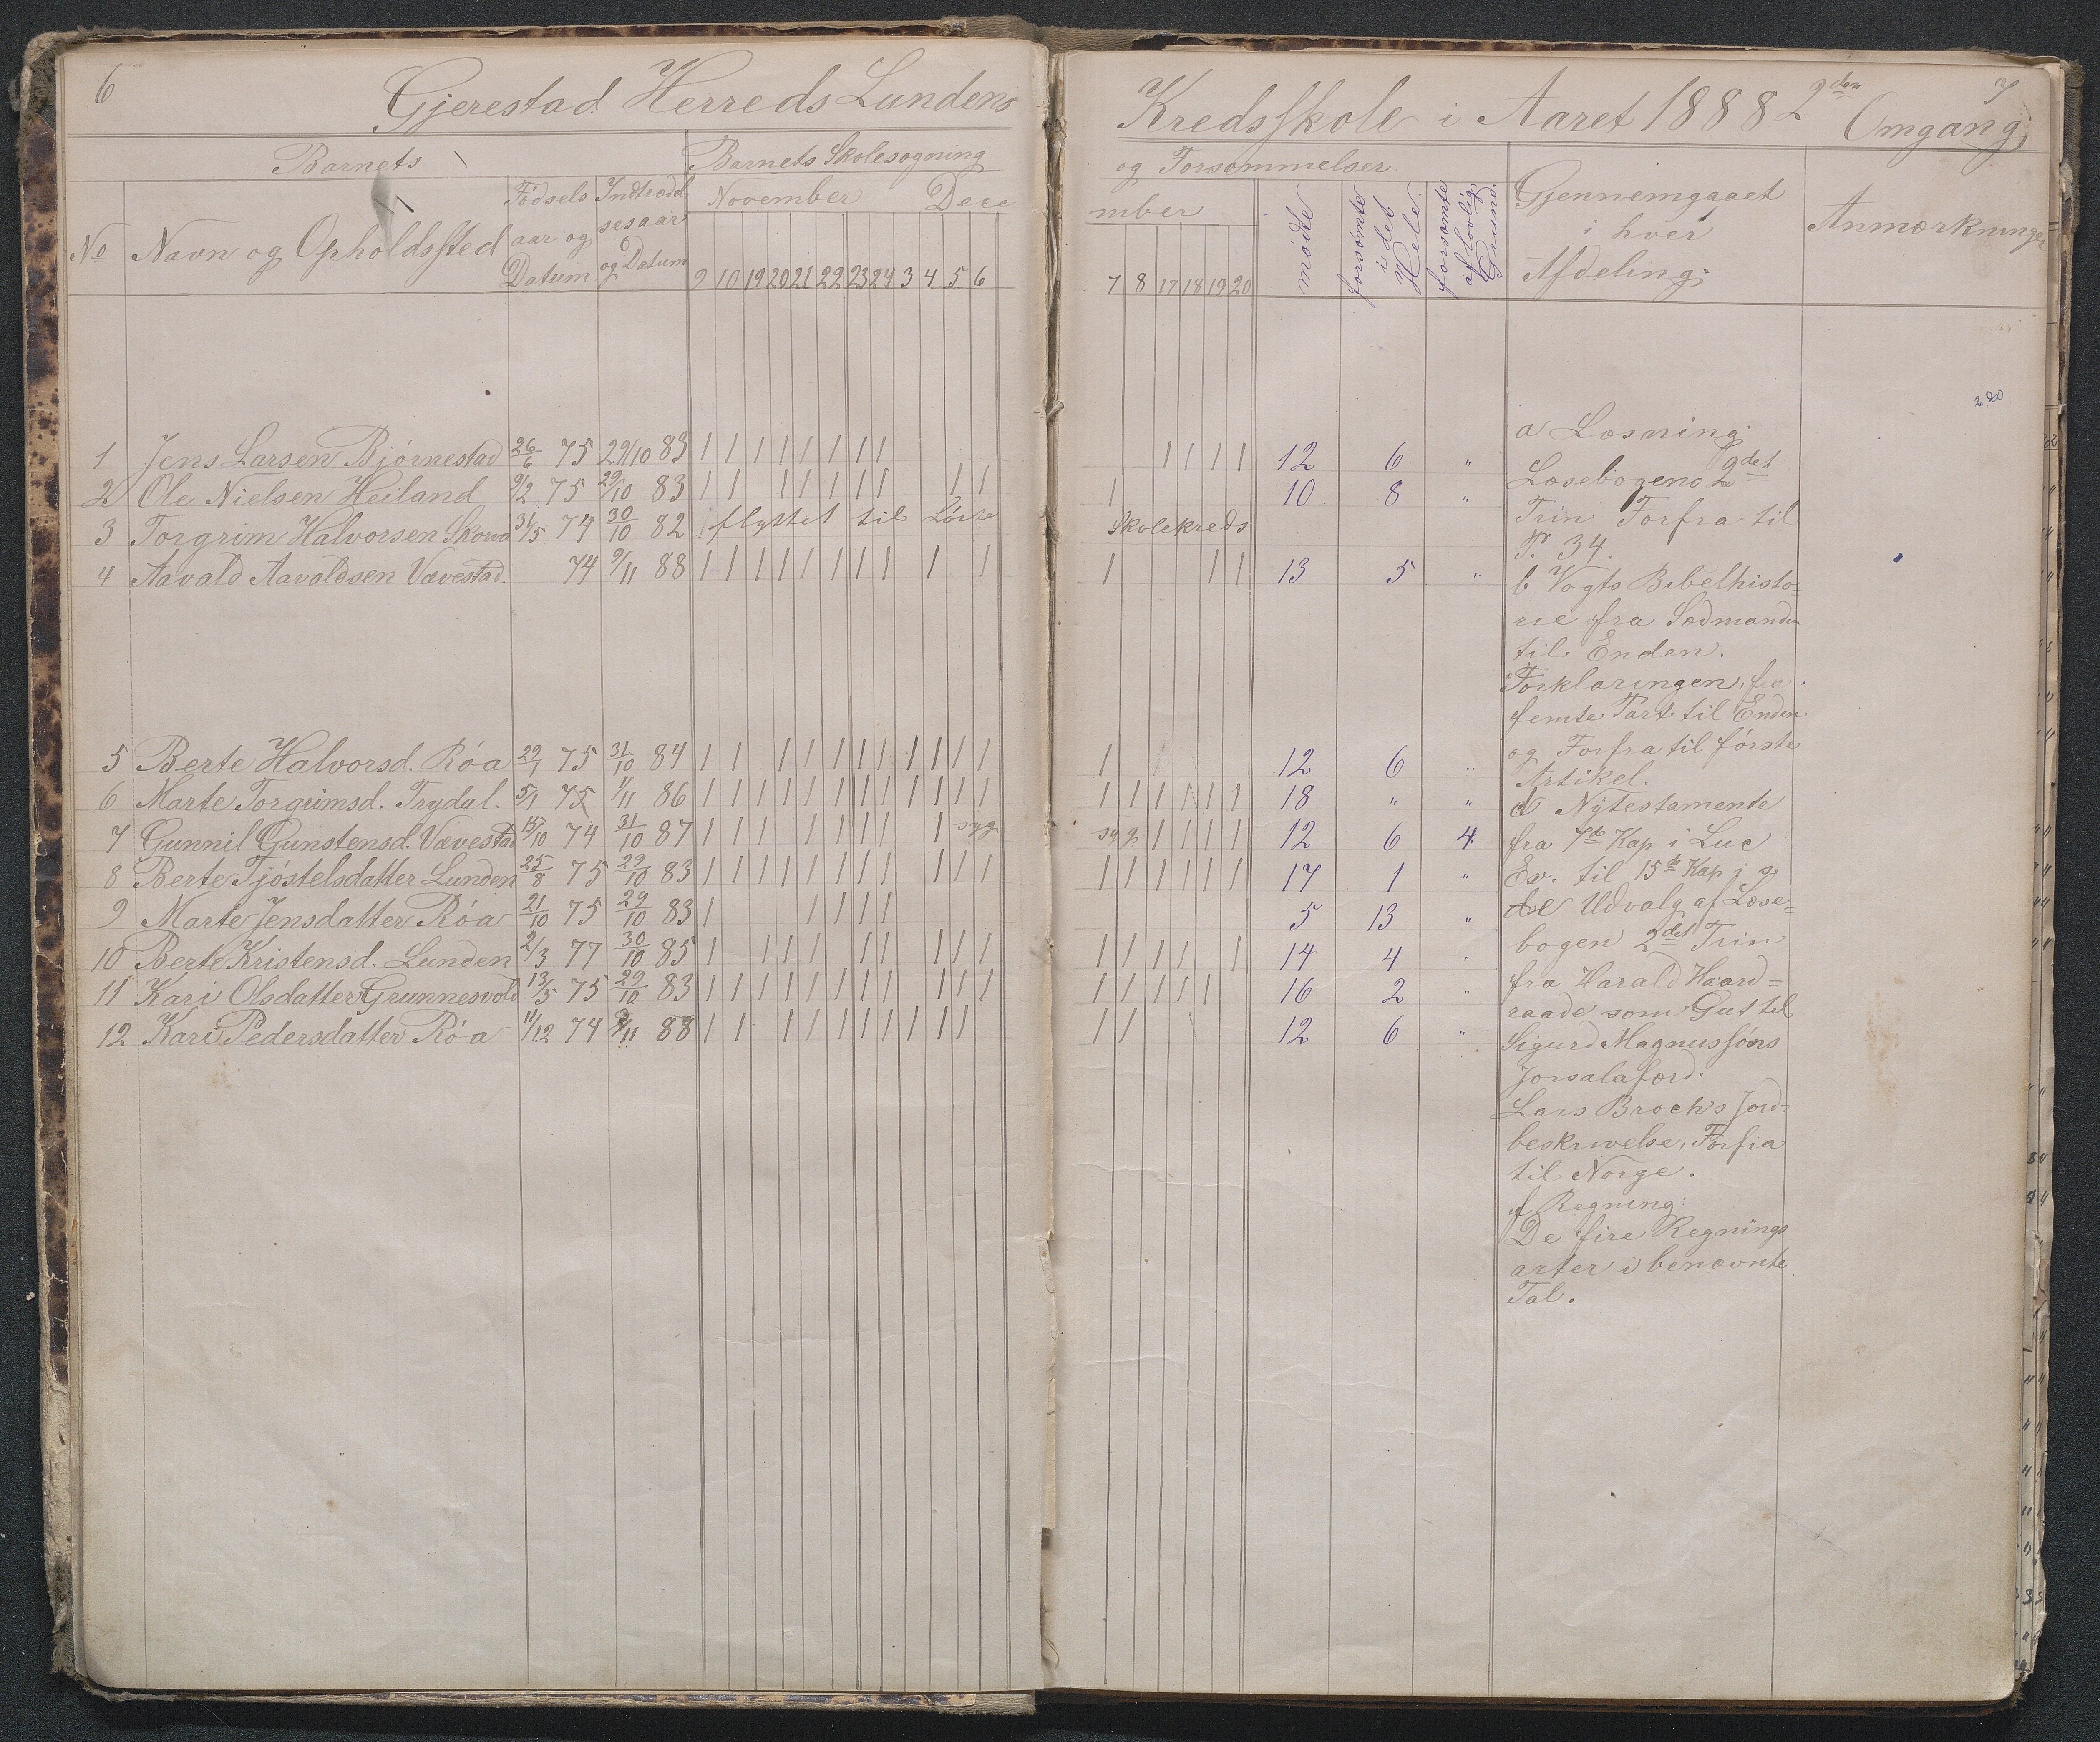 6
Gjerestad Herreds Lundens
Barnets
Barnets Skolesøgning
No
Navn og Opholdssted
Fødsels aar og Datum
Indtrædel sesaar og Datum
November
Dece
9 10 19 20 21 22 23 24 3 4 5 6
1 Jens Larsen Bjørnestad 26/6 75 29/10 83 1 1 1 1 1 1 1 1
2 Ole Nielsen Heiland 9/2 75 29/10 83 1 1 1 1 1 1 1 1 1
3 Torgrim Halvorsen 31/5 74 30/10 82 flyttet til
4 Aavald Aavaldsen Vævestad 74 9/11 88 1 1 1 1 1 1 1 1 1 1
5 Berte Halvorsd. Røa 29/1 75 31/10 84 1 1 1 1 1 1 1 1 1 1 1
6 Marte Torgrimsd. Trydal. 5/1 75 1/11 86 1 1 1 1 1 1 1 1 1 1 1 1
7 Gunnil Gunstensd. Vævestad 15/10 74 31/10 87 1 1 1 1 1 1 1 1 syg
8 Berte Tjøstelsdatter Lunden 25/8 75 29/10 83 1 1 1 1 1 1 1 1 1 1 1
9 Marte Jensdatter Røa 21/10 75 29/10 83 1 1 1 1 1
10 Berte Kristensd. Lunden 2/3 77 30/10 85 1 1 1 1 1 1 1 1 1
11 Kari Olsdatter Grunnesvold 13/5 75 29/10 83 1 1 1 1 1 1 1 1 1 1 1
12 Kari Pedersdatter Røa 11/12 74 9/11 88 1 1 1 1 1 1 1 1 1 1
7
Kredsskole i Aaret 1888 2den Omgang
og Forsømmelser
mber
7 8 17 18 19 20
mødte
forsømte i det Hele.
forsømte af lovlig Grund.
Gjennemgaaet
i hver
Afdeling.
Anmærkninger
1 1 1 1 12 6 "
1 10 8 "
Skolekreds
1 1 1 13 5 "
1 12 6 "
1 1 1 1 1 1 18 " "
syg 1 1 1 1 12 6 4
1 1 1 1 1 1 17 1 "
5 13 "
1 1 1 1 1 14 4 "
1 1 1 1 1 16 2 "
1 1 12 6 "
a Læsning
Læsebogens 2det
Trin Forfra til
P. 34.
b Vogts Bibelhisto=
rie fra Sædmanden
til Enden.
Forklaringen, fra
femte Part til Enden
og Forfra til første
Artikel.
d Nytestamente
fra 7de Kap i Luc
Ev. til 15de Kap i s.
e Udvalg af Læse=
bogen 2det Trin
fra Harald Haard=
raade som Gut til
Sigurd Magnussøns
Jorsalafærd.
Lars Broch's Jord=
beskrivelse, Forfra
til Norge.
f Regning:
De fire Regnings
arter i benævnte
Tal.